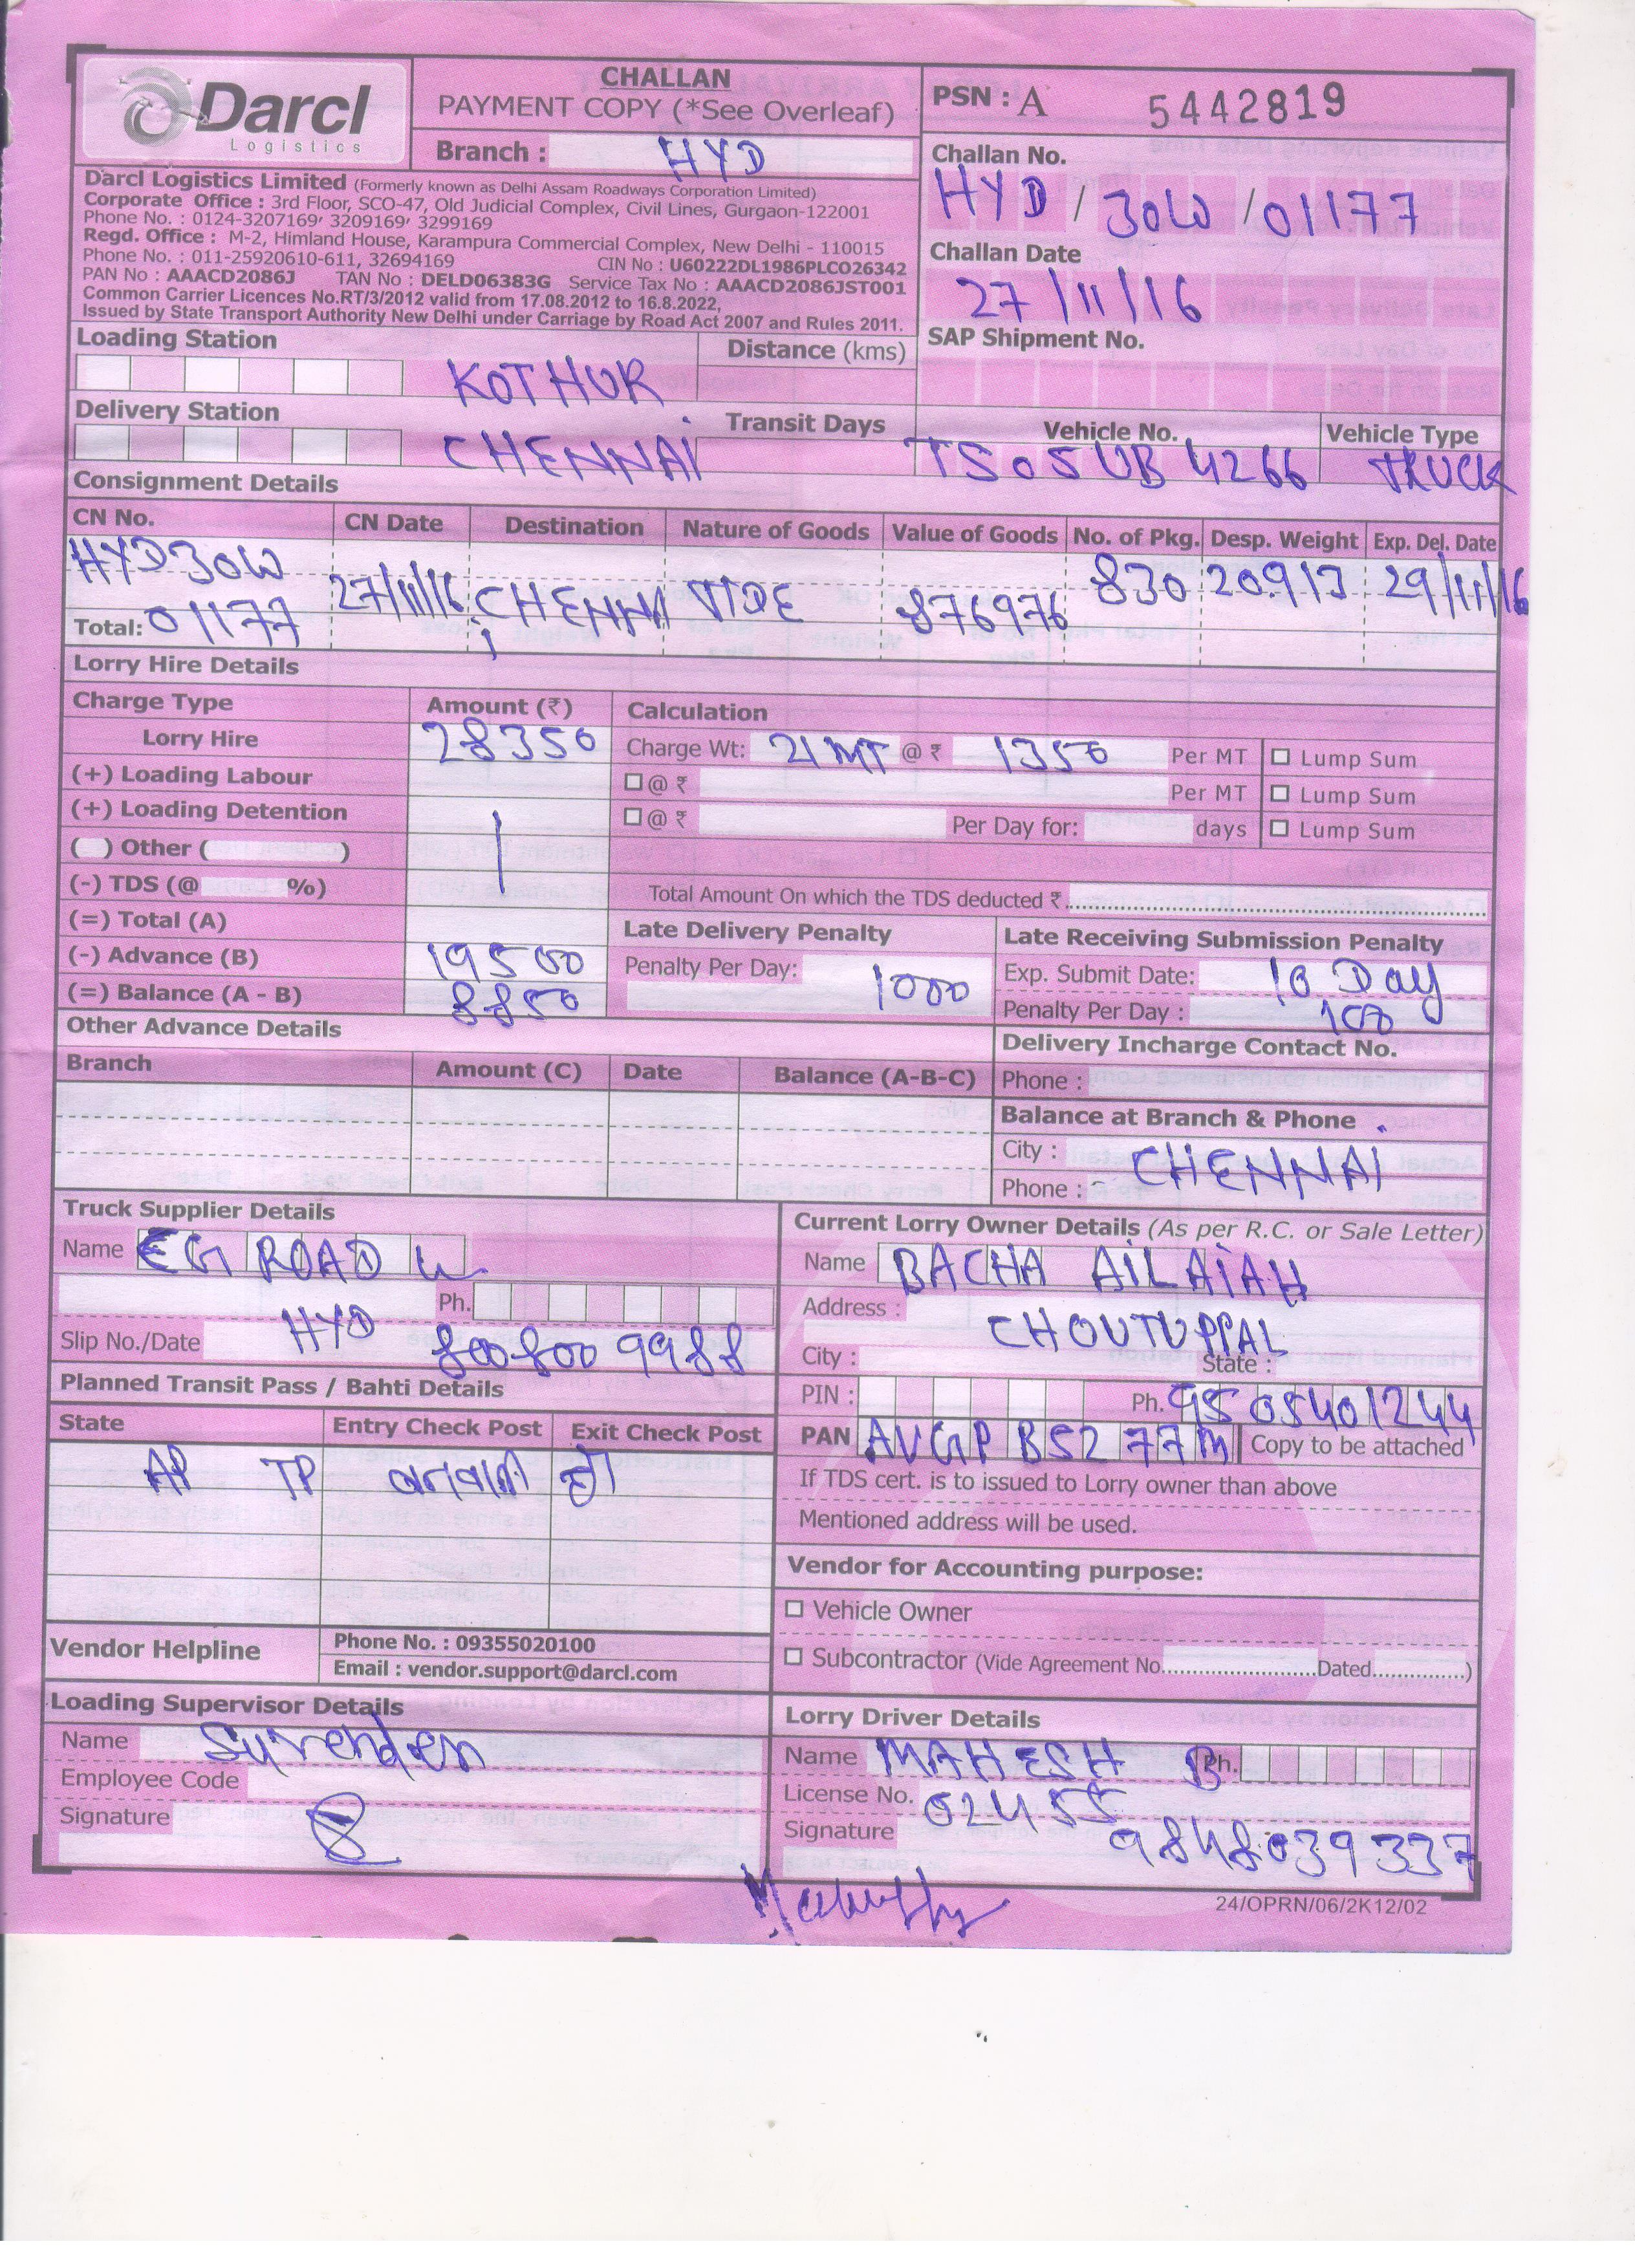 Darcl
Logistics
CHALLAN
PAYMENT COPY (*See Overleaf)
Branch : HYD
PSN : A 5442819
Challan No.
HYD / 30W / 01177
Challan Date
27/11/16
SAP Shipment No.
Darcl Logistics Limited (Formerly known as Delhi Assam Roadways Corporation Limited)
Corporate Office : 3rd Floor, SCO-47, Old Judicial Complex, Civil Lines, Gurgaon-122001
Phone No. : 0124-3207169, 3209169, 3299169
Regd. Office : M-2, Himland House, Karampura Commercial Complex, New Delhi - 110015
Phone No. : 011-25920610-611, 32694169 CIN No : U60222DL1986PLCO26342
PAN No : AAACD2086J TAN No : DELD06383G Service Tax No : AAACD2086JST001
Common Carrier Licences No.RT/3/2012 valid from 17.08.2012 to 16.8.2022,
Issued by State Transport Authority New Delhi under Carriage by Road Act 2007 and Rules 2011.
Loading Station KOTHUR Distance (kms)
Delivery Station CHENNAI Transit Days
Vehicle No. Vehicle Type
TS05UB 4266 TRUCK
Consignment Details
CN No. CN Date Destination Nature of Goods Value of Goods No. of Pkg. Desp. Weight Exp. Del. Date
HYD30W 27/11/16 CHENNAI 876976 830 20.913 29/11/16
Total: 01177
Lorry Hire Details
Charge Type Amount (₹) Calculation
Lorry Hire 28350 Charge Wt: 21 MT @ ₹ 1350 Per MT Lump Sum
(+) Loading Labour @ ₹ Per MT Lump Sum
(+) Loading Detention @ ₹ Per Day for: days Lump Sum
( ) Other ( )
(-) TDS (@ %) Total Amount On which the TDS deducted ₹
(=) Total (A)
(-) Advance (B) 19500
(=) Balance (A - B) 8850
Late Delivery Penalty
Penalty Per Day: 1000
Late Receiving Submission Penalty
Exp. Submit Date: 10 Day
Penalty Per Day : 100
Other Advance Details
Branch Amount (C) Date Balance (A-B-C)
Delivery Incharge Contact No.
Phone :
Balance at Branch & Phone
City : CHENNAI
Phone :
Truck Supplier Details
Name EG ROAD
Ph.
Slip No./Date HYD 8008009988
Current Lorry Owner Details (As per R.C. or Sale Letter)
Name BACHA AILAIAH
Address : CHOUTUPPAL
City : State :
PIN : Ph. 9505401244
PAN AVGPB5277M Copy to be attached
If TDS cert. is to issued to Lorry owner than above
Mentioned address will be used.
Planned Transit Pass / Bahti Details
State Entry Check Post Exit Check Post
AP TP
Vendor for Accounting purpose:
Vehicle Owner
Subcontractor (Vide Agreement No. Dated )
Vendor Helpline
Phone No. : 09355020100
Email : vendor.support@darcl.com
Loading Supervisor Details
Name Surender
Employee Code
Signature
Lorry Driver Details
Name MAHESH B Ph.
License No. 02455
Signature 9848039337
24/OPRN/06/2K12/02